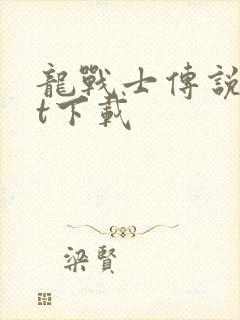 龍戰士傳說
t下載
梁賢